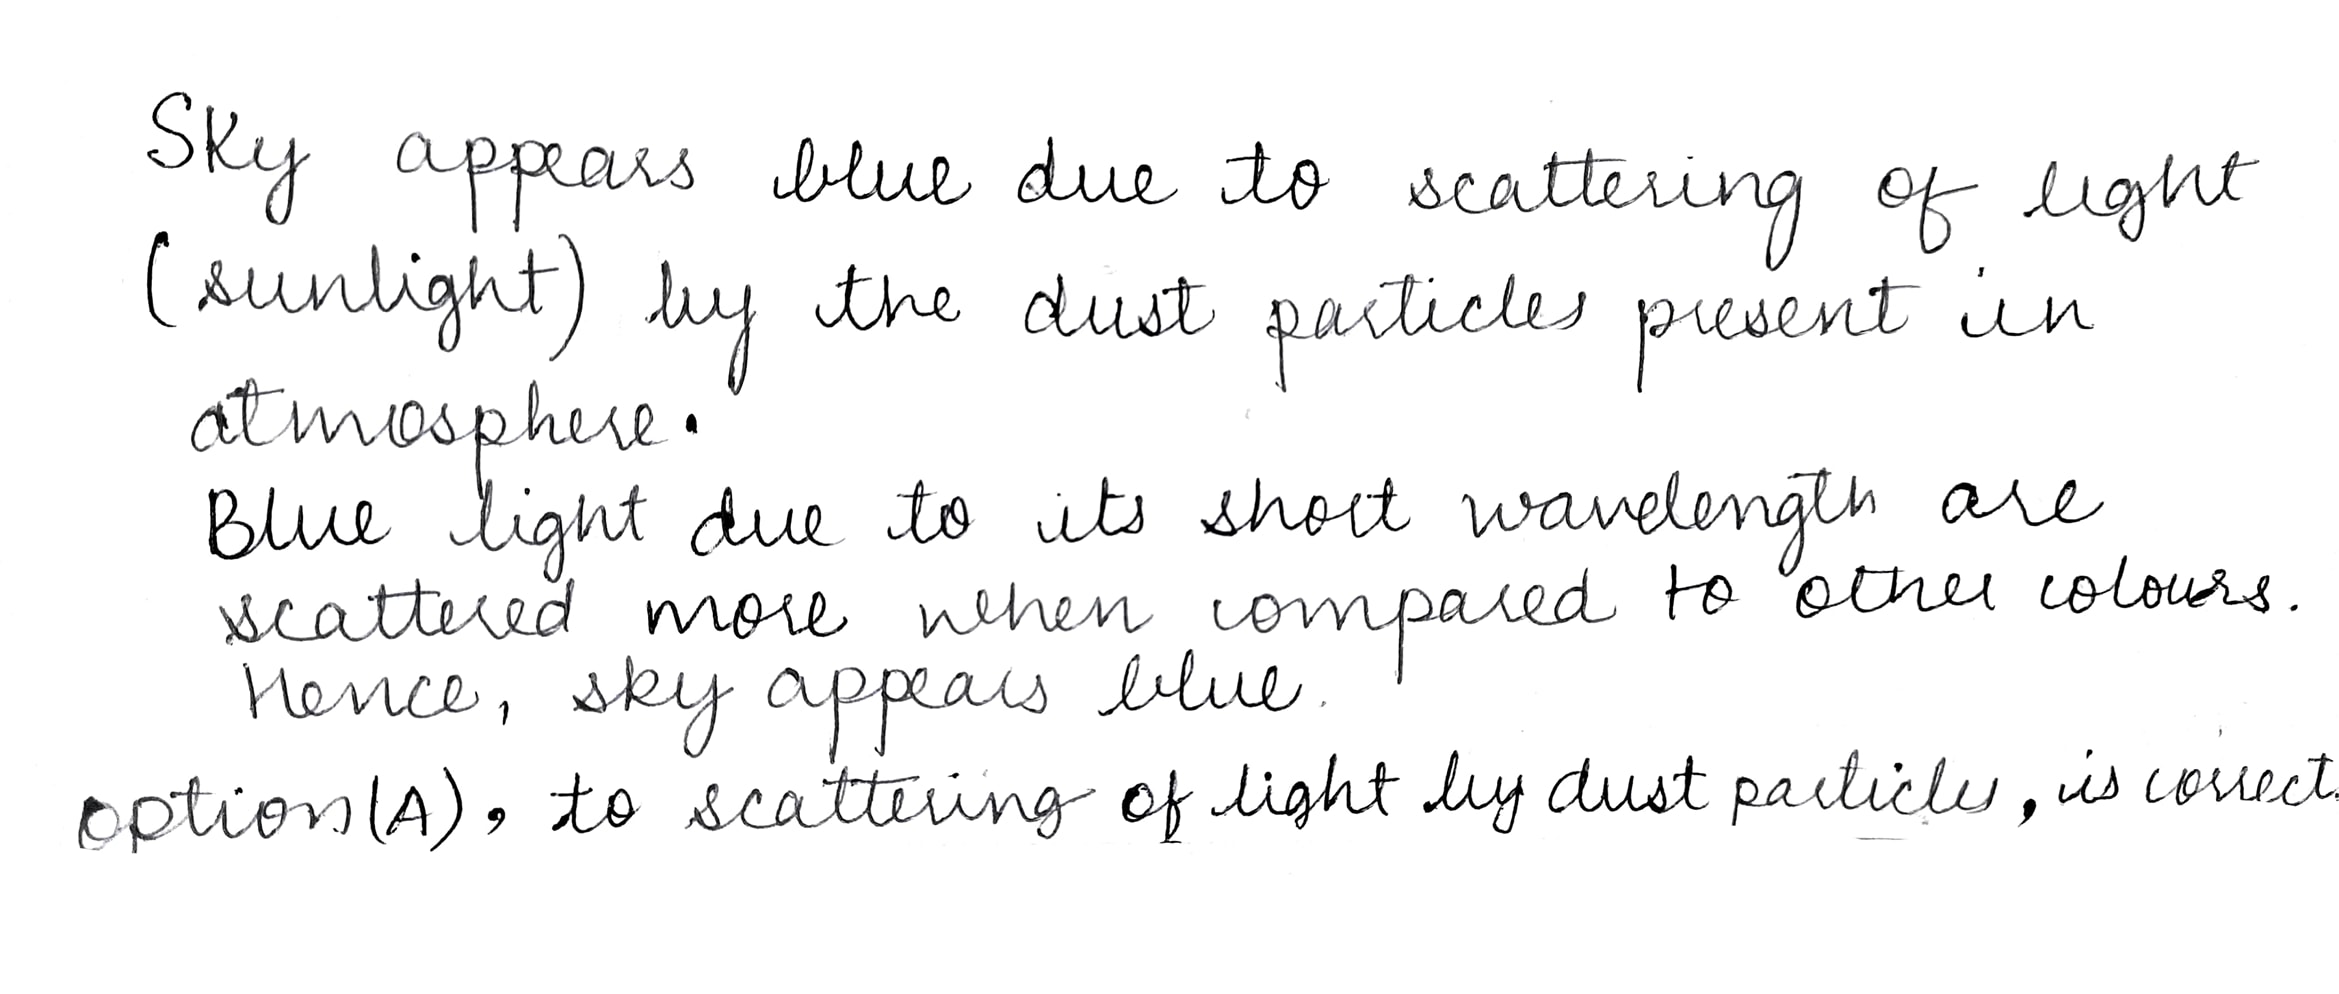 Sky appears blue due to scattering of light
(sunlight) by the dust particles present in
atmosphere.
Blue light due to its short wavelength are
scattered more when compared to other colours.
Hence, sky appears blue.
option(A), to scattering of light by dust particles, is correct.